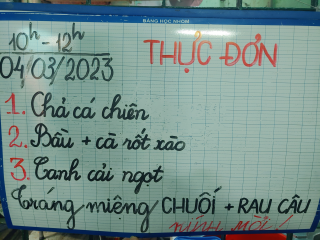 BẢNG HỌC NHÓM
10h - 12h
04/03/2023
THỰC ĐƠN
1. Chả cá chiên
2. Bầu + cà rốt xào
3. Canh cải ngọt
Tráng miệng CHUỐI + RAU CÂU
kính mời!